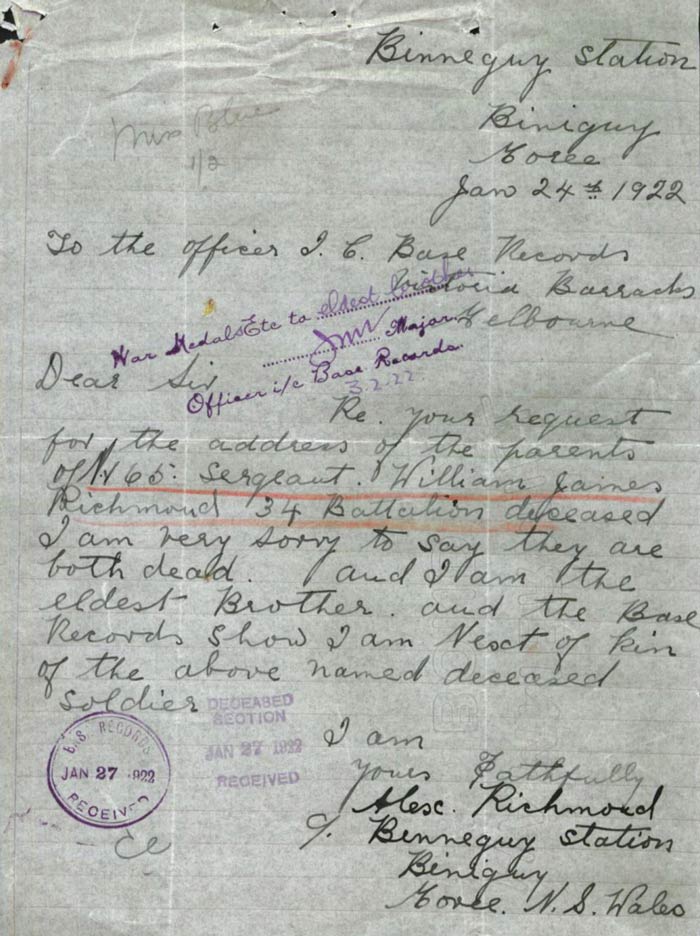 Binneguy Station
Biniguy
Moree
Jan 24th 1922
Mrs
1/2
To the officer I. C. Base Records
Victoria Barracks
Melbourne
War Medals Etc to eldest brother
Major
Officer i/c Base Records
3.2.22
Dear Sir
Re. your request
for the address of the parents
of N. 65. Sergeant. William James
Richmond 34 Battalion deceased
I am very sorry to say they are
both dead. and I am the
eldest Brother. and the Base
Records show I am Nesct of kin
of the above named deceased
soldier
DECEASED
SECTION
JAN 27 1922
RECEIVED
BASE RECORDS
JAN 27 1922
RECEIVED
I am
yours Faithfully
Alesc. Richmond
c/. Binneguy station
Biniguy
Moree. N. S. Wales